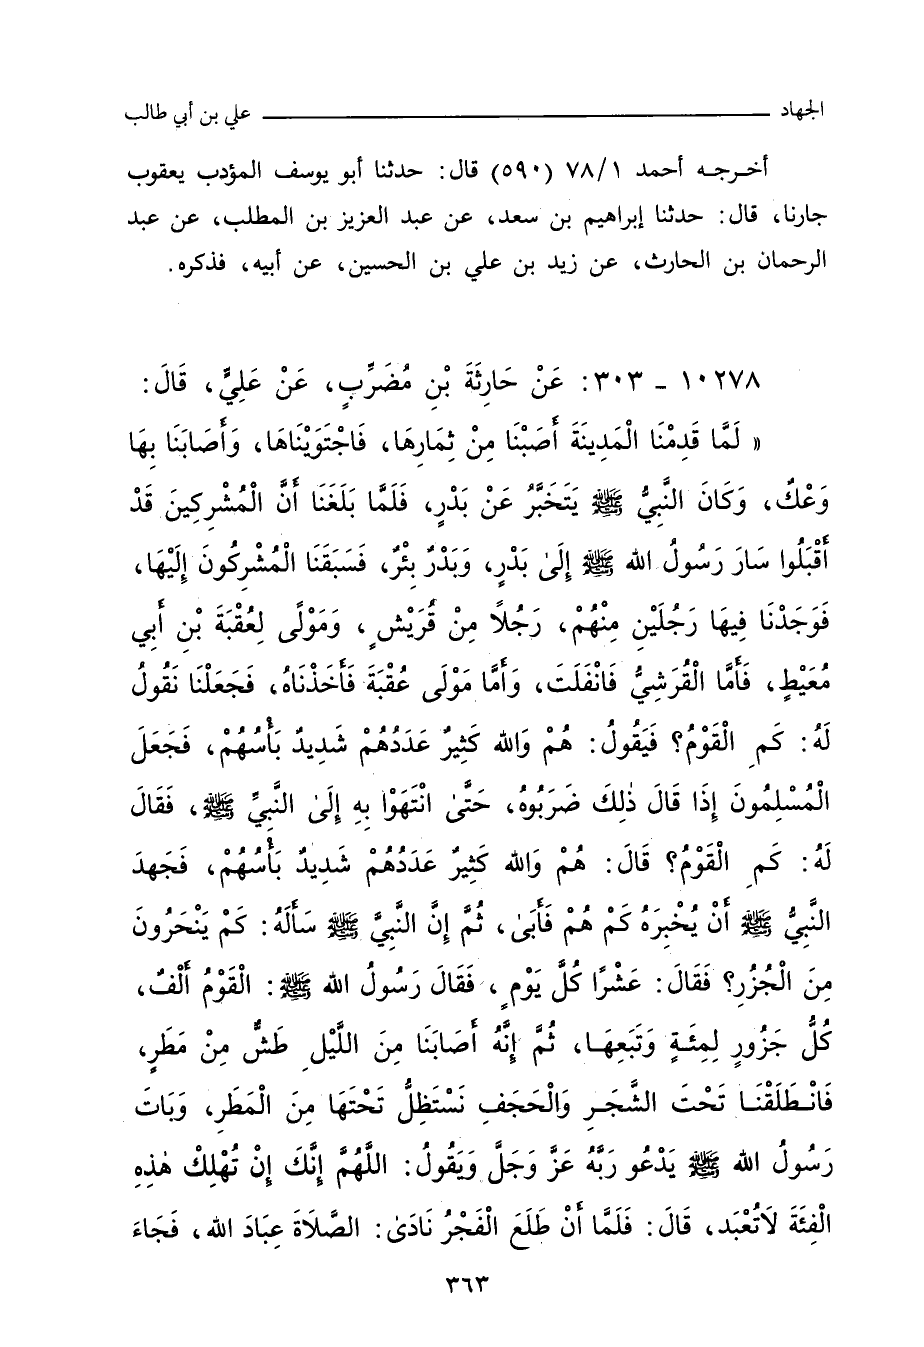 الجهاد ــــــــــ علي بن أبي طالب
أخرجه أحمد ٧٨/١ (٥٩٠) قال: حدثنا أبو يوسف المؤدب يعقوب
جارنا، قال: حدثنا إبراهيم بن سعد، عن عبد العزيز بن المطلب، عن عبد
الرحمان بن الحارث، عن زيد بن علي بن الحسين، عن أبيه، فذكره.
١٠٢٧٨ - ٣٠٣: عَنْ حَارِثَةَ بْنِ مُضَرِّبٍ، عَنْ عَلِيٍّ، قَالَ:
« لَمَّا قَدِمْنَا الْمَدِينَةَ أَصَبْنَا مِنْ ثِمَارِهَا، فَاجْتَوَيْنَاهَا، وَأَصَابَنَا بِهَا
وَعْكٌ، وَكَانَ النَّبِيُّ ﷺ يَتَخَبَّرُ عَنْ بَدْرٍ، فَلَمَّا بَلَغَنَا أَنَّ الْمُشْرِكِينَ قَدْ
أَقْبَلُوا سَارَ رَسُولُ الله ﷺ إِلَىٰ بَدْرٍ، وَبَدْرٌ بِئْرٌ، فَسَبَقَنَا الْمُشْرِكُونَ إِلَيْهَا،
فَوَجَدْنَا فِيهَا رَجُلَيْنِ مِنْهُمْ، رَجُلًا مِنْ قُرَيْشٍ، وَمَوْلًى لِعُقْبَةَ بْنِ أَبِي
مُعَيْطٍ، فَأَمَّا الْقُرَشِيُّ فَانْفَلَتَ، وَأَمَّا مَوْلَى عُقْبَةَ فَأَخَذْنَاهُ، فَجَعَلْنَا نَقُولُ
لَهُ: كَمِ الْقَوْمُ؟ فَيَقُولُ: هُمْ وَالله كَثِيرٌ عَدَدُهُمْ شَدِيدٌ بَأْسُهُمْ، فَجَعَلَ
الْمُسْلِمُونَ إِذَا قَالَ ذٰلِكَ ضَرَبُوهُ، حَتَّىٰ انْتَهَوْا بِهِ إِلَىٰ النَّبِيِّ ﷺ، فَقَالَ
لَهُ: كَمِ الْقَوْمُ؟ قَالَ: هُمْ وَالله كَثِيرٌ عَدَدُهُمْ شَدِيدٌ بَأْسُهُمْ، فَجَهِدَ
النَّبِيُّ ﷺ أَنْ يُخْبِرَهُ كَمْ هُمْ فَأَبَىٰ، ثُمَّ إِنَّ النَّبِيَّ ﷺ سَأَلَهُ: كَمْ يَنْحَرُونَ
مِنَ الْجُزُرِ؟ فَقَالَ: عَشْرًا كُلَّ يَوْمٍ، فَقَالَ رَسُولُ الله ﷺ: الْقَوْمُ أَلْفٌ،
كُلُّ جَزُورٍ لِمِئَةٍ وَتَبَعِهَا، ثُمَّ إِنَّهُ أَصَابَنَا مِنَ اللَّيْلِ طَشٌّ مِنْ مَطَرٍ،
فَانْطَلَقْنَا تَحْتَ الشَّجَرِ وَالْحَجَفِ نَسْتَظِلُّ تَحْتَهَا مِنَ الْمَطَرِ، وَبَاتَ
رَسُولُ الله ﷺ يَدْعُو رَبَّهُ عَزَّ وَجَلَّ وَيَقُولُ: اللَّهُمَّ إِنَّكَ إِنْ تُهْلِكْ هٰذِهِ
الْفِئَةَ لَاتُعْبَد، قَالَ: فَلَمَّا أَنْ طَلَعَ الْفَجْرُ نَادَىٰ: الصَّلَاةَ عِبَادَ الله، فَجَاءَ
٣٦٣